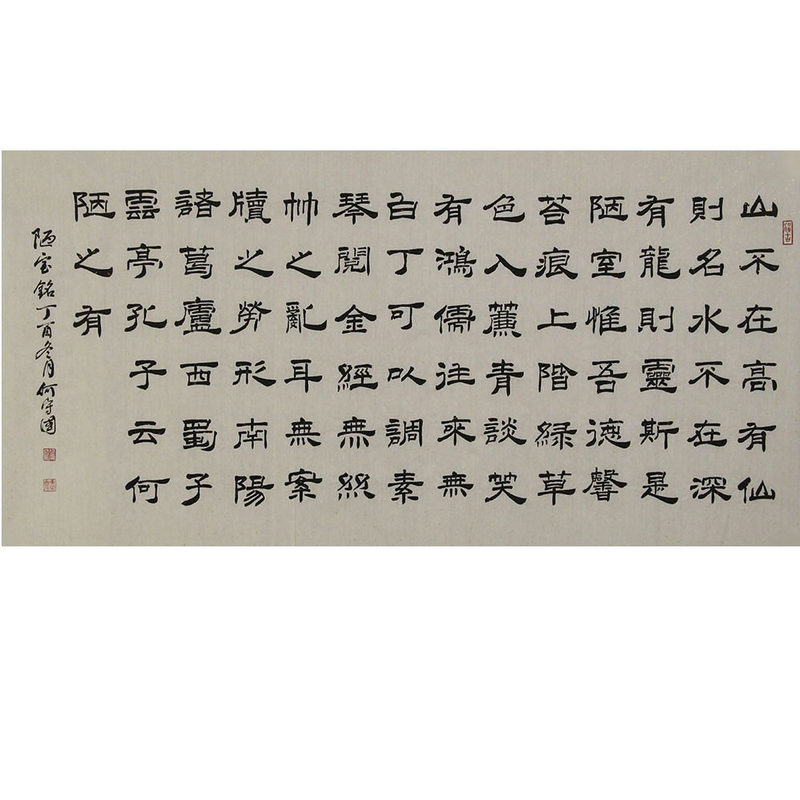 山不在高有仙
則名水不在深
有龍則靈斯是
陋室惟吾德馨
苔痕上階綠草
色入簾青談笑
有鴻儒往來無
白丁可以調素
琴閱金經無絲
竹之亂耳無案
牘之勞形南陽
諸葛廬西蜀子
雲亭孔子云何
陋之有
陋室銘丁酉冬月何守國